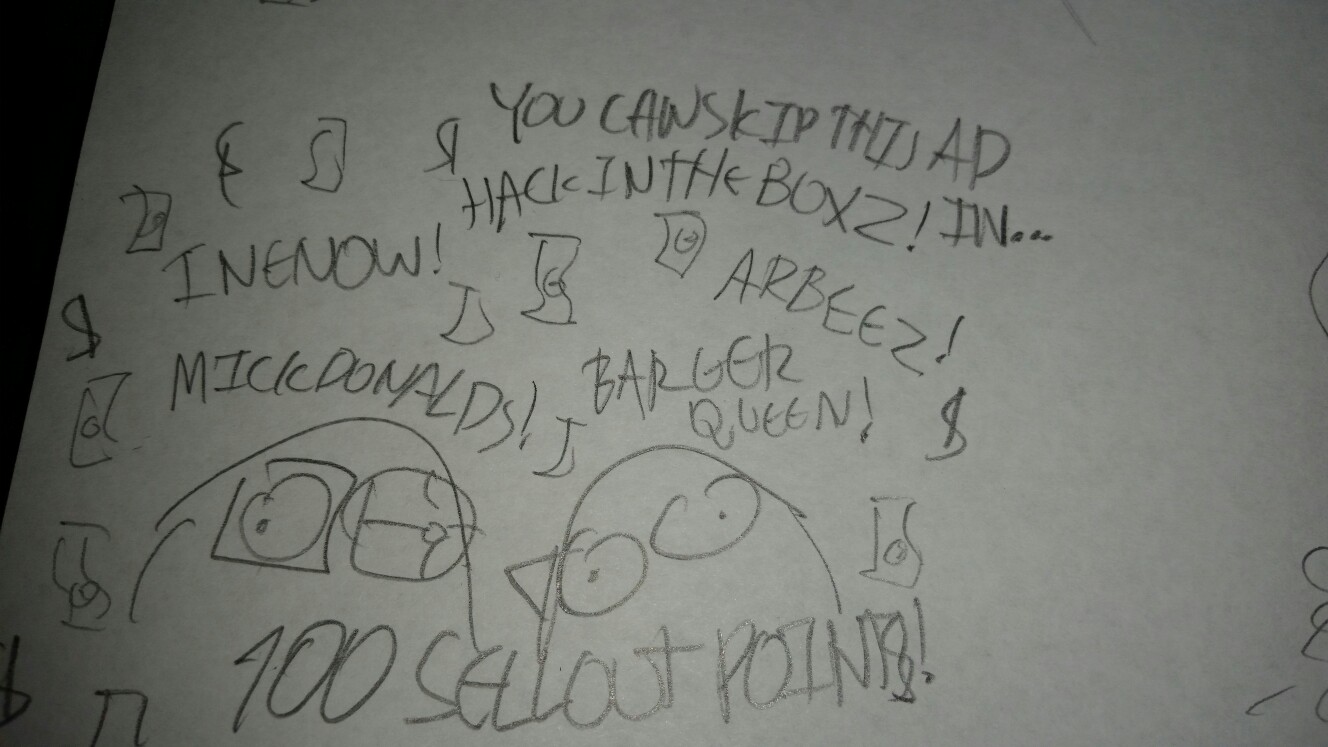 YOU CAN SKIP THIS AD
HACK IN THE BOX 2! IN...
INENOW!
ARBEEZ!
MICKDONALDS!
BARGER
QUEEN!
100 SELLOUT POINTS!